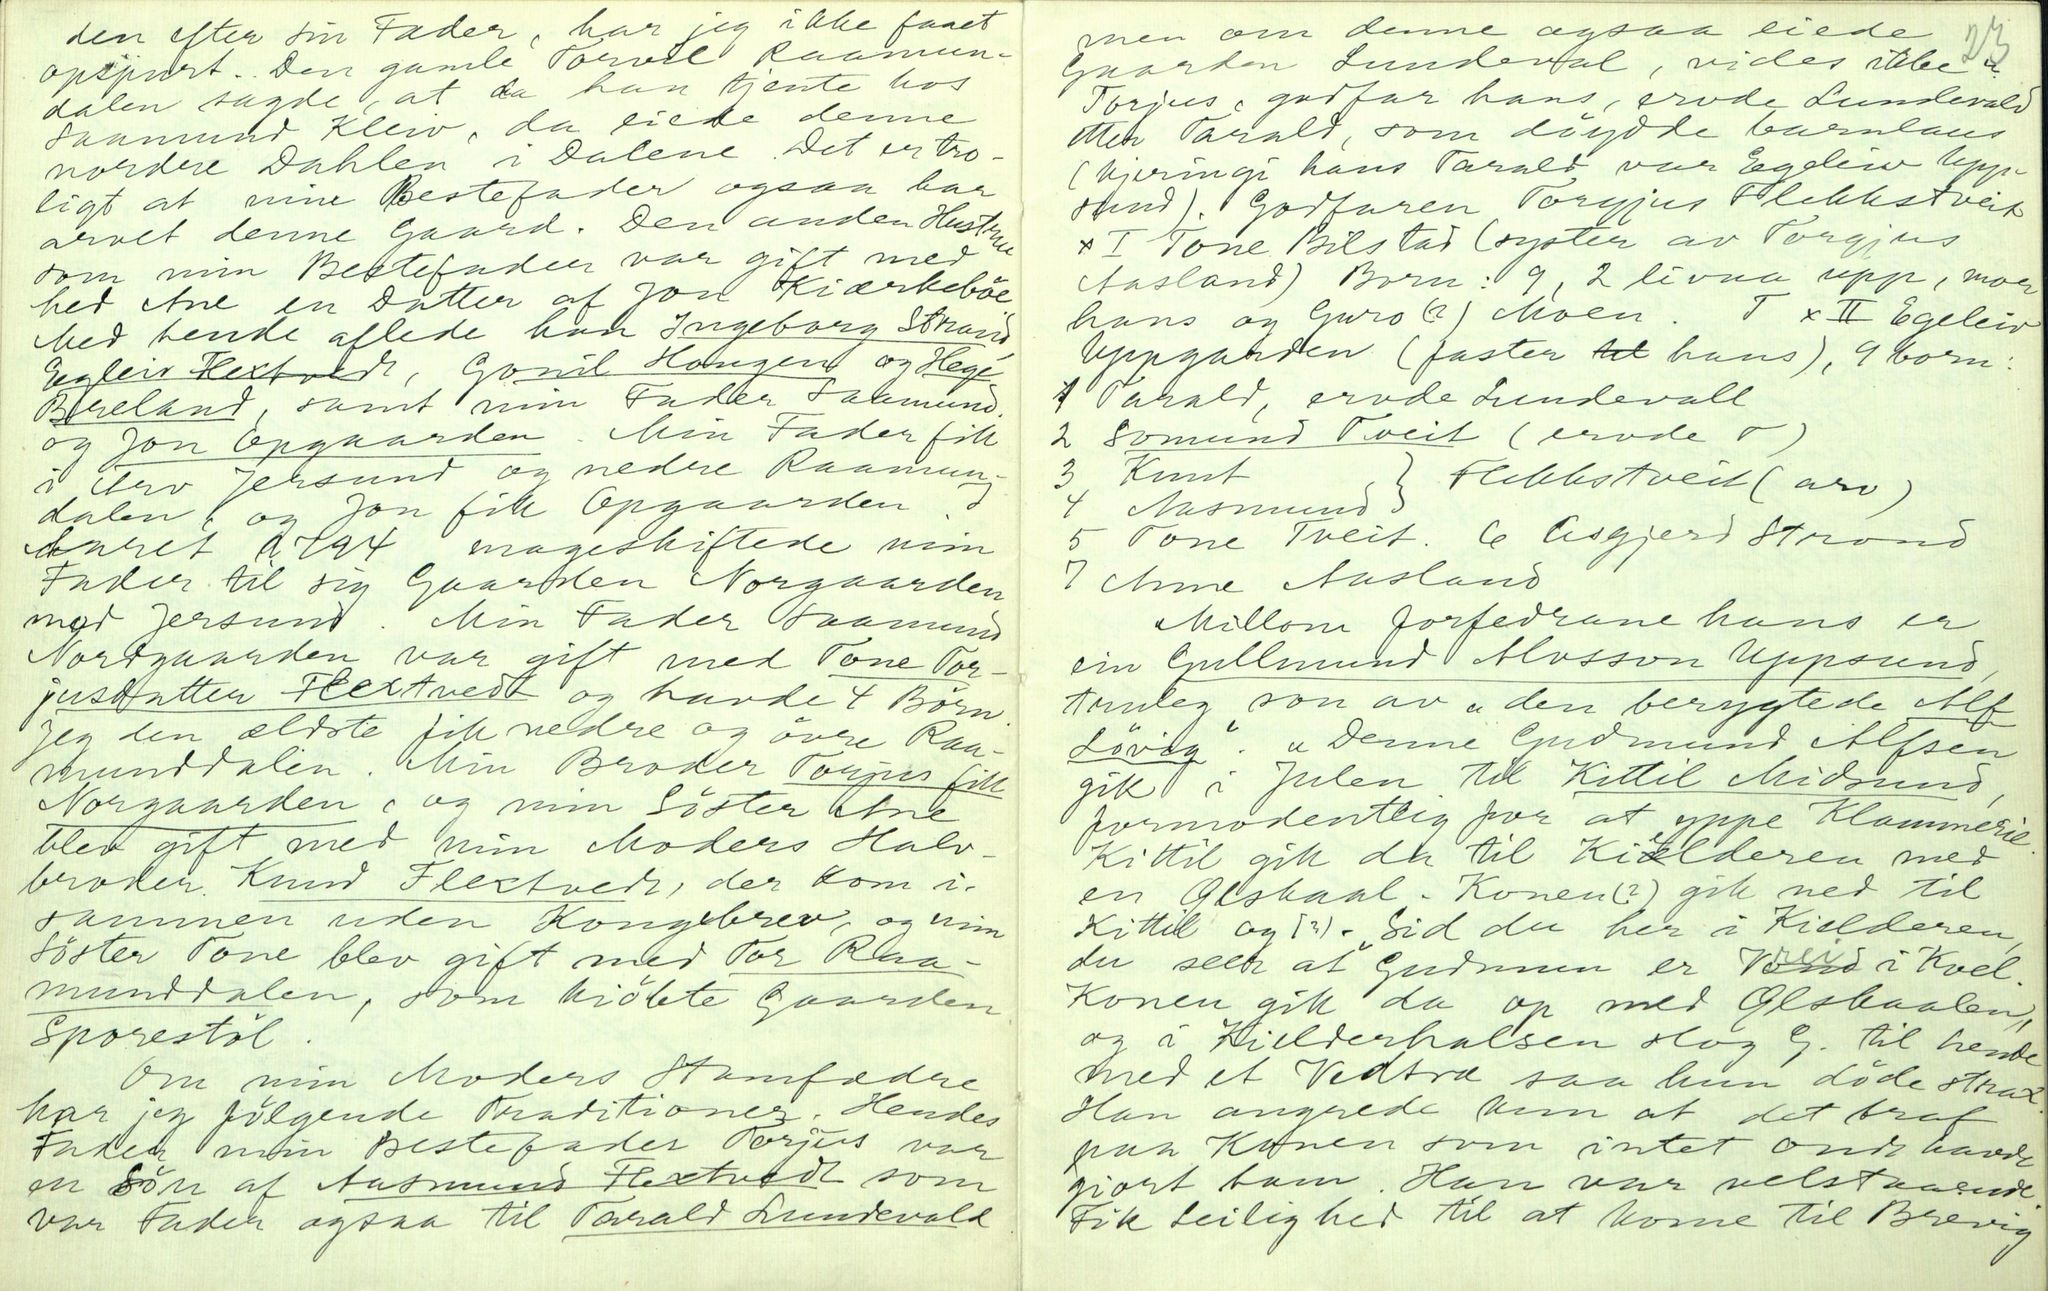 den efter sin Fader, har jeg ikke faaet
opspurt. Den gamle Torvil Raamun-
dalen sagde, at da han tjente hos
Saamund Kleiv, da eiede denne
nordre Dahlen i Dalene. Det er tro-
ligt at mine Bestefader ogsaa har
arvet denne Gaard. Den anden Hustrue
som min Bestefader var gift med
hed Ane en Datter af Jon Kiærkebøe
Med hende aflede han Ingeborg Straid,
Egleiv Flextvedt, Gonil Haugen og Hege
Breland, samt min Fader Saamund.
og Jon Opgaarden. Min Fader fik
i Arv Jersund og nedre Raamun-
dalen, og Jon fik Opgaarden.
Aaret 1794 mageskiftede min
Fader til sig Gaarden Norgaarden
mod Jersund. Min Fader Saamund
Nordgaarden var gift med Tone Tor-
jusdatter Flextvedt og havde 4 Börn.
Jeg den ældste fik nedre og övre Raa-
munddalen. Min Broder Torjus fik
Norgaarden, og min Söster Ane
blev gift med min Moders Halv-
broder Knud Flextvedt, der kom i-
sammen uden Kongebrev, og min
Söster Tone blev gift med Tor Raa-
munddalen, som kiöbte Gaarden
Sporestöl.
Om min Moders Stamfædre
har jeg fölgende Traditioner. Hendes
Fader min Bestefader Torjus var
en Sön af Aasmund Flextvedt som
var Fader ogsaa til Tarald Lundevald
23
men om denne ogsaa eiede
Gaarden Lundeval, vides ikke"
Torjus, godfar hans, ervde Lundevald
etter Tarald, som döydde barnlaus
(kjeringi hans Tarald var Egeleiv Upp-
sund). Godfaren Torgjus Flekkstveit
x I Tone Bilstad (syster av Torgjus
Aasland) Born: 9, 2 livna upp, mor
hans og Guro (?) Moen. T x II Egeleiv
Uppgarden (faster til hans), 9 born:
1 Tarald, ervde Lundevall
2 Somund Tveit (ervde )
3 Knut } Flekkstveit (arv)
4 Aasmund }
5 Tone Tveit. 6 Asgjerd Strond
7 Anne Aasland
Millom forfedrane hans er
ein Gullmund Alvsson Uppsund,
truleg son av "den berygtede Alf
Lövig". "Denne Gudmund Alfsen
gik i Julen til Kittil Midsund,
formodentlig for at yppe Klammerie.
Kittil gik da til Kielderen med
en Ølskaal. Konen (?) gik ned til
Kittil og (?). Sid du her i Kielderen,
du seer at Gudmun er Vond vrei i Kvel.
Konen gik da op med Ølskaalen,
og i Kielderhalsen slog G. til hende
med et Vedtræ saa hun döde strax.
Han angrede kun at det traf
paa Konen som intet ondt havde
giort ham. Han var velstaaende.
Fik Leilighed til at kome til Brevig